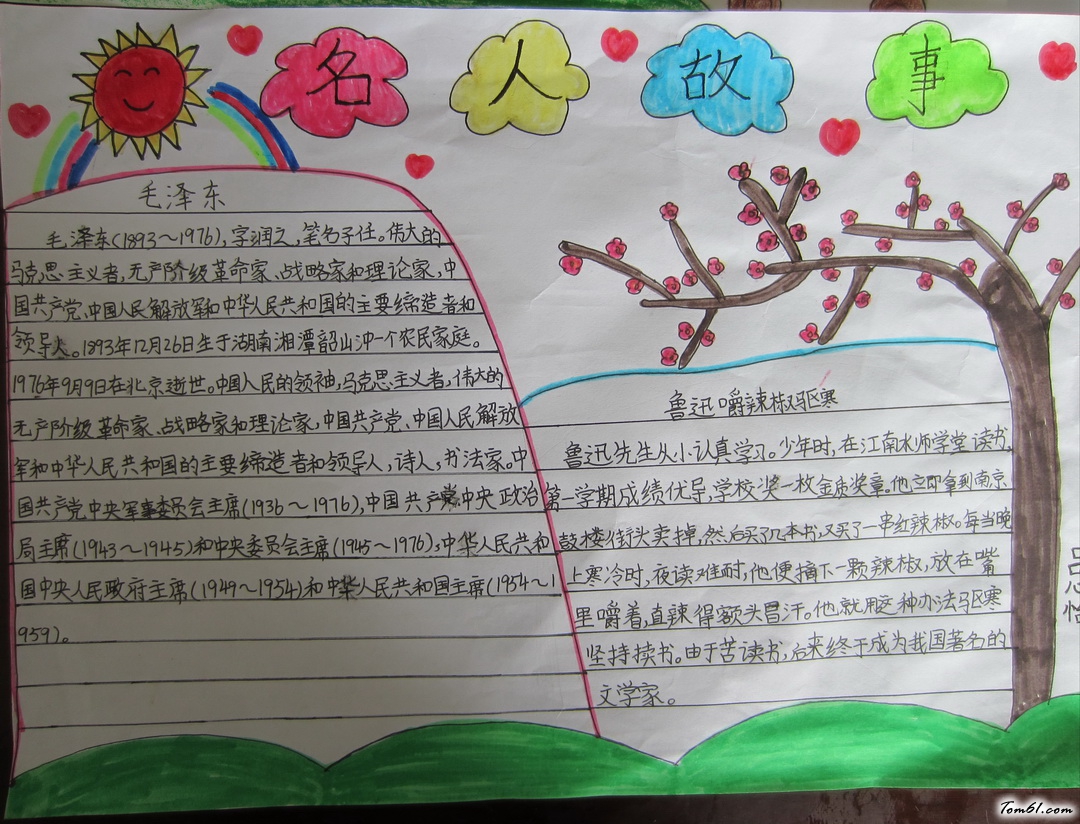 名人故事
毛泽东
毛泽东(1893～1976),字润之,笔名子任。伟大的
马克思主义者,无产阶级革命家、战略家和理论家,中
国共产党、中国人民解放军和中华人民共和国的主要缔造者和
领导人。1893年12月26日生于湖南湘潭韶山冲一个农民家庭。
1976年9月9日在北京逝世。中国人民的领袖,马克思主义者,伟大的
无产阶级革命家、战略家和理论家,中国共产党、中国人民解放
军和中华人民共和国的主要缔造者和领导人,诗人,书法家。中
国共产党中央军事委员会主席(1936～1976),中国共产党中央政治
局主席(1943～1945)和中央委员会主席(1945～1976),中华人民共和
国中央人民政府主席(1949～1954)和中华人民共和国主席(1954～1
959)。
鲁迅嚼辣椒驱寒
鲁迅先生从小认真学习。少年时,在江南水师学堂读书,
第一学期成绩优导,学校奖一枚金质奖章。他立即拿到南京
鼓楼街头卖掉,然后买了几本书,又买了一串红辣椒。每当晚
上寒冷时,夜读难耐,他便摘下一颗辣椒,放在嘴
里嚼着,直辣得额头冒汗。他就用这种办法驱寒
坚持读书。由于苦读书,后来终于成为我国著名的
文学家。
Tom61.com